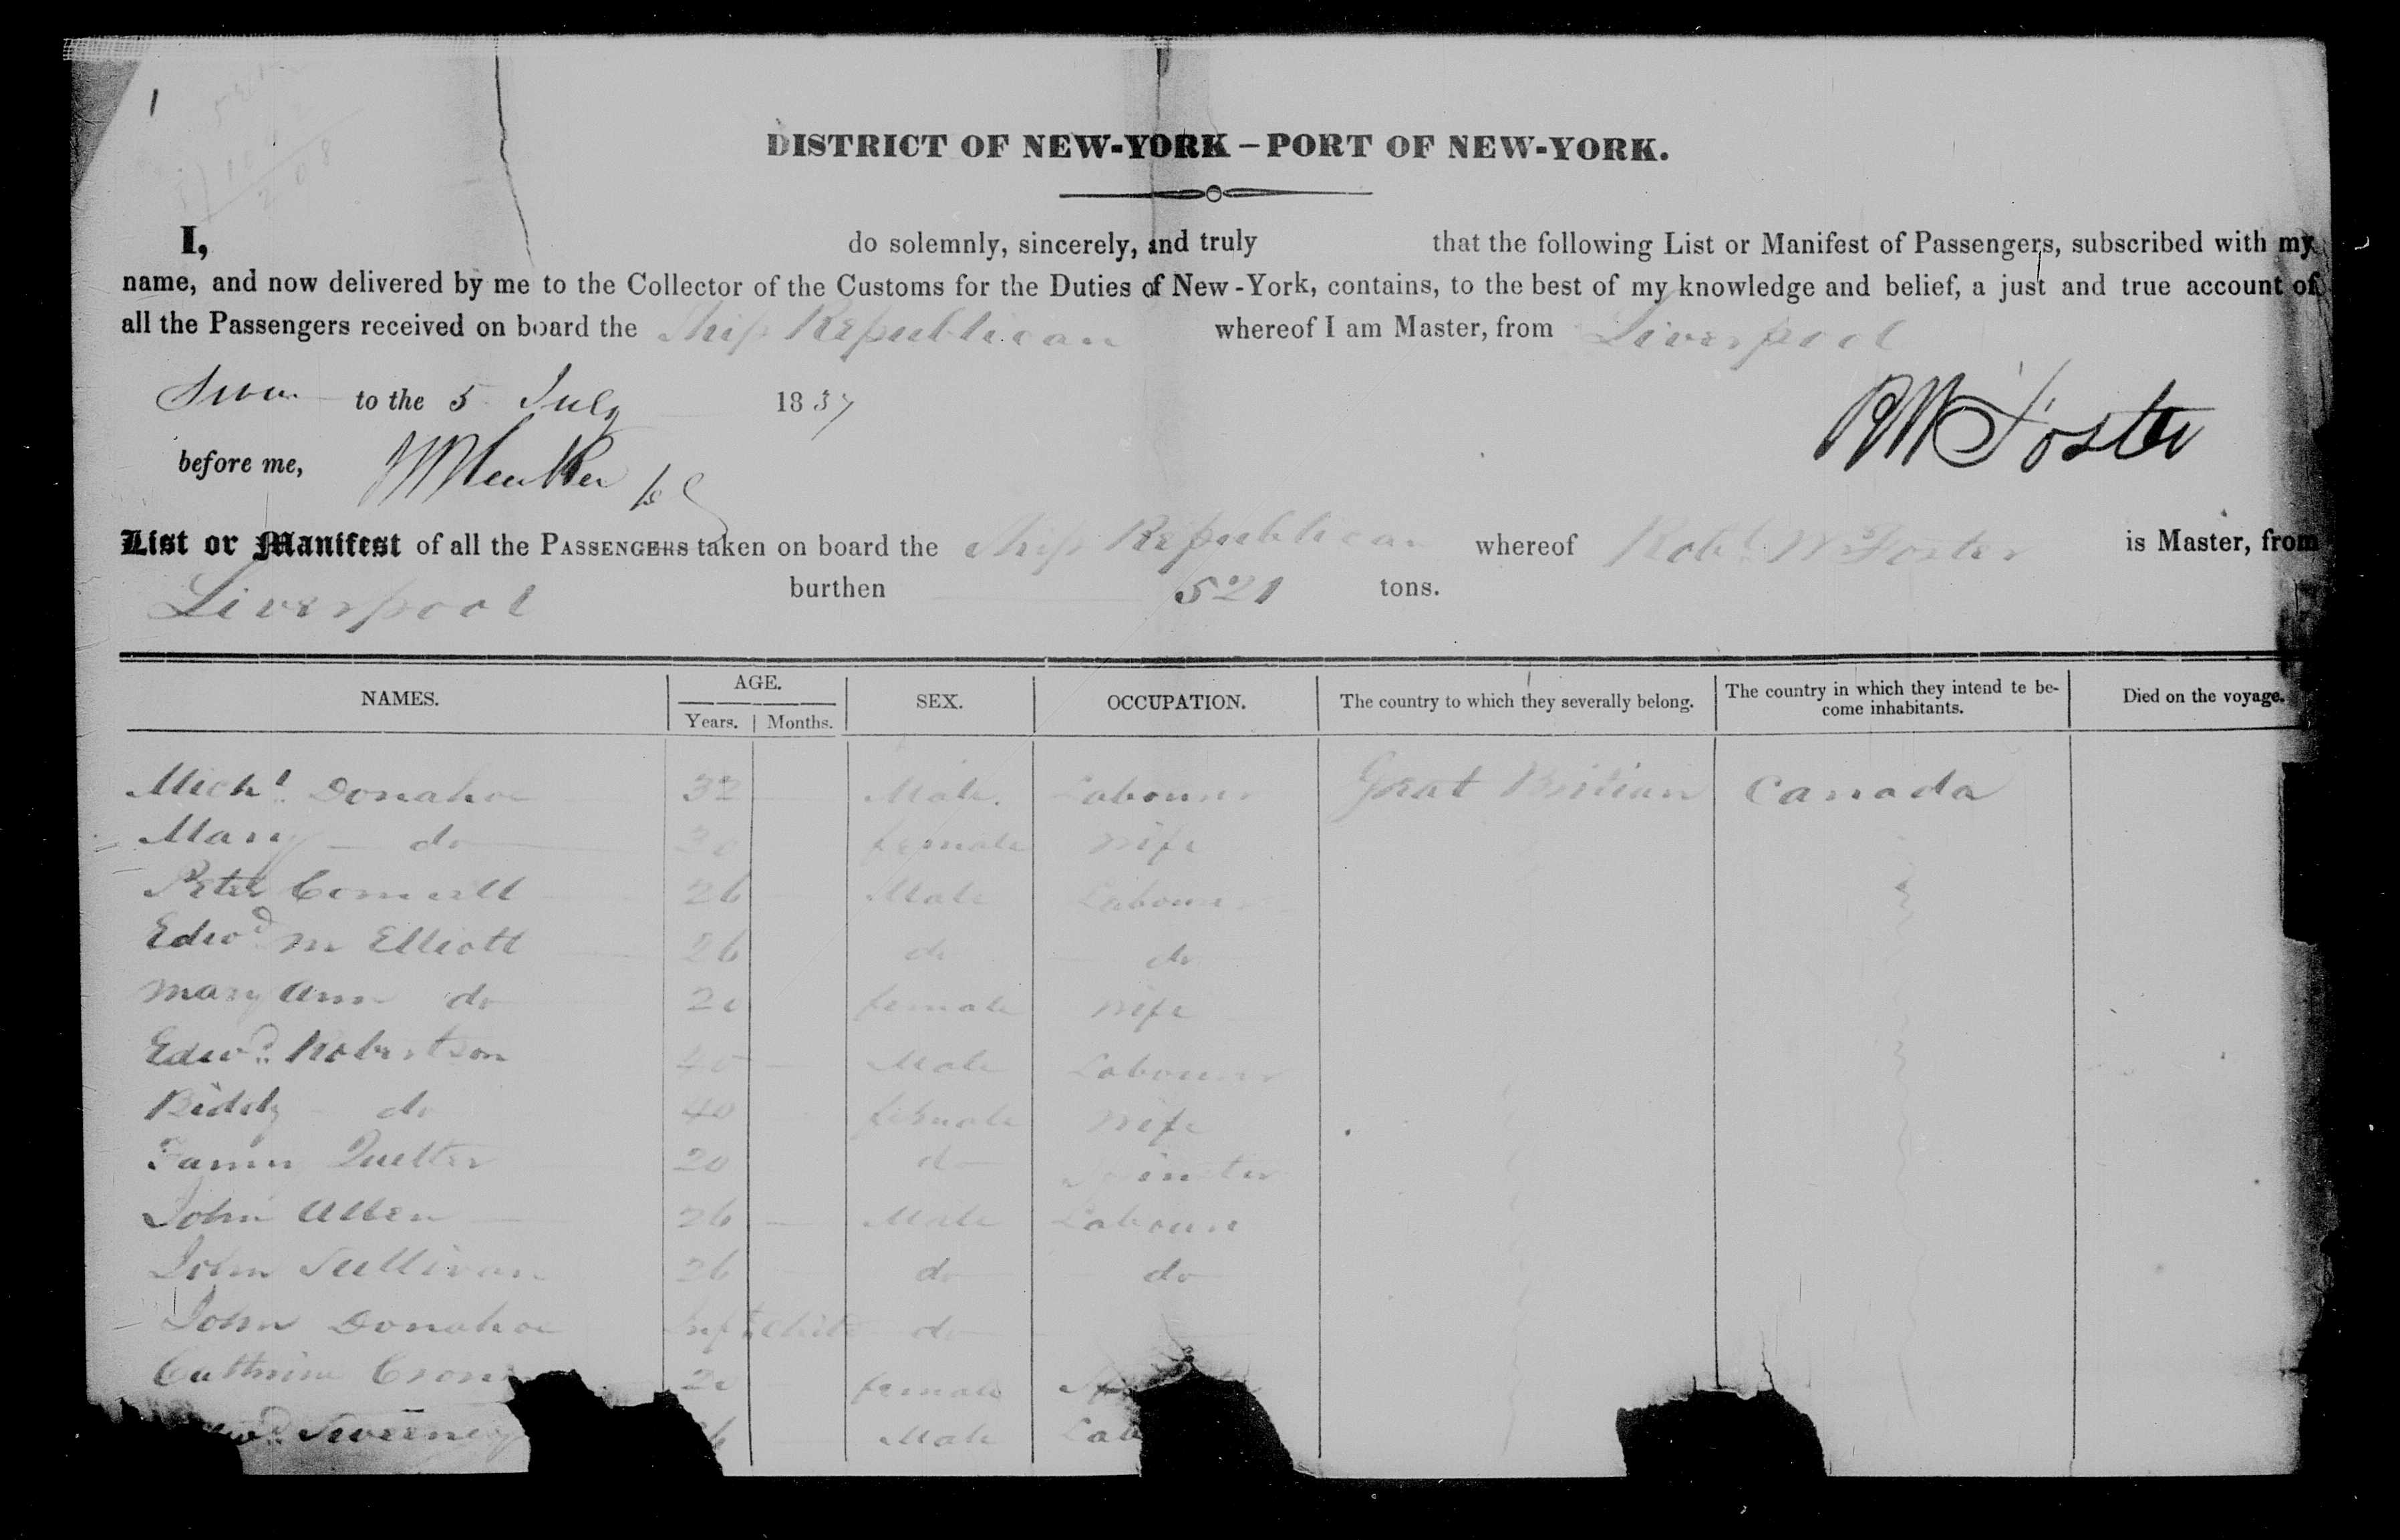 1
DISTRICT OF NEW-YORK – PORT OF NEW-YORK.
I, do solemnly, sincerely, and truly that the following List or Manifest of Passengers, subscribed with my
name, and now delivered by me to the Collector of the Customs for the Duties of New-York, contains, to the best of my knowledge and belief, a just and true account of
all the Passengers received on board the Ship Republican whereof I am Master, from Liverpool
to the 5 July 1837
RW Foster
before me,
List or Manifest of all the PASSENGERS taken on board the Ship Republican whereof Robt. W Foster is Master, from
Liverpool burthen 521 tons.
NAMES. AGE. Years. Months. SEX. OCCUPATION. The country to which they severally belong. The country in which they intend te be-come inhabitants. Died on the voyage.
Michl. Donahoe 32 Male. Labourer Great Britian Canada
Mary do 30 female wife
Peter 26 Male Labourer
Edwd. M Elliott 26 do do
Mary Ann do 20 female wife
Edwd. Robertson 40 Male Labourer
Biddy do 40 female wife
Quilter 20 do Spinster
John Allen 26 Male Labourer
John Sullivan 26 do do
John Donahoe do
Cathrine 20 female
Sweeney Male Lab